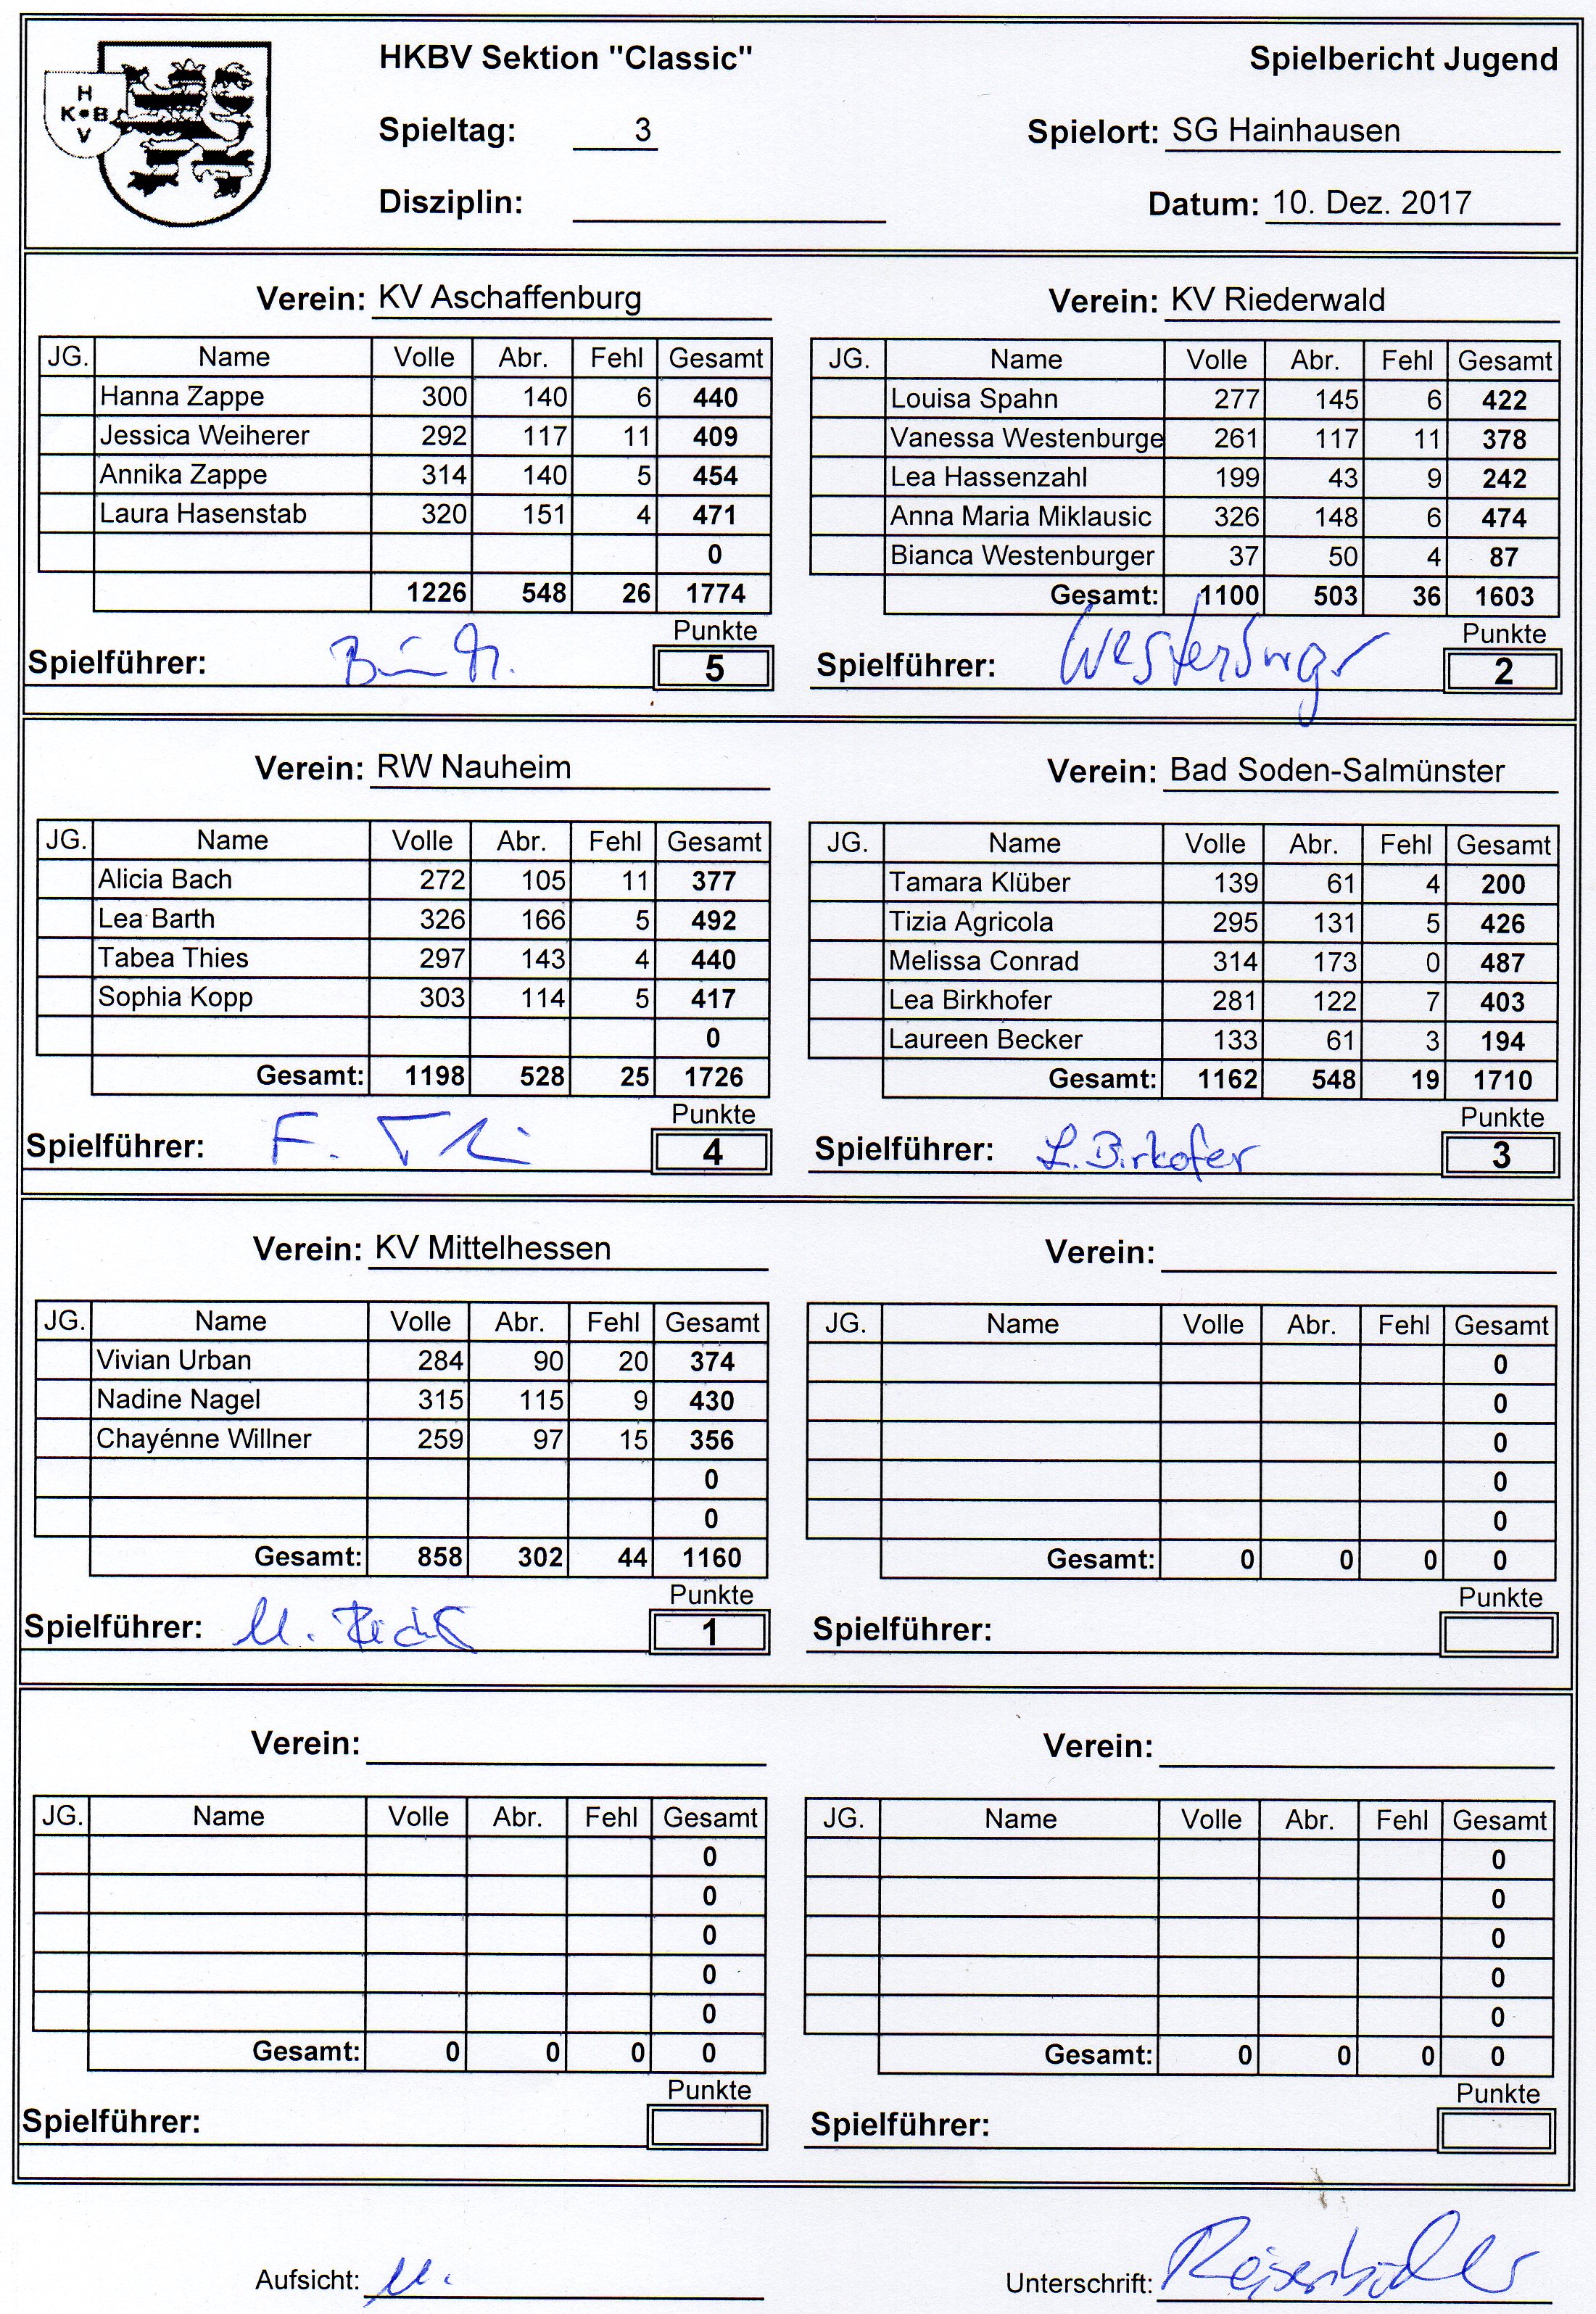 H
K•B
V
HKBV Sektion "Classic"
Spielbericht Jugend
Spieltag: 3
Spielort: SG Hainhausen
Disziplin:
Datum: 10. Dez. 2017
Verein: KV Aschaffenburg
JG. Name Volle Abr. Fehl Gesamt
Hanna Zappe 300 140 6 440
Jessica Weiherer 292 117 11 409
Annika Zappe 314 140 5 454
Laura Hasenstab 320 151 4 471
0
1226 548 26 1774
Punkte
Spielführer: 5
Verein: KV Riederwald
JG. Name Volle Abr. Fehl Gesamt
Louisa Spahn 277 145 6 422
Vanessa Westenburge 261 117 11 378
Lea Hassenzahl 199 43 9 242
Anna Maria Miklausic 326 148 6 474
Bianca Westenburger 37 50 4 87
Gesamt: 1100 503 36 1603
Punkte
Spielführer: 2
Verein: RW Nauheim
JG. Name Volle Abr. Fehl Gesamt
Alicia Bach 272 105 11 377
Lea Barth 326 166 5 492
Tabea Thies 297 143 4 440
Sophia Kopp 303 114 5 417
0
Gesamt: 1198 528 25 1726
Punkte
Spielführer: 4
Verein: Bad Soden-Salmünster
JG. Name Volle Abr. Fehl Gesamt
Tamara Klüber 139 61 4 200
Tizia Agricola 295 131 5 426
Melissa Conrad 314 173 0 487
Lea Birkhofer 281 122 7 403
Laureen Becker 133 61 3 194
Gesamt: 1162 548 19 1710
Punkte
Spielführer: L. Birkofer 3
Verein: KV Mittelhessen
JG. Name Volle Abr. Fehl Gesamt
Vivian Urban 284 90 20 374
Nadine Nagel 315 115 9 430
Chayénne Willner 259 97 15 356
0
0
Gesamt: 858 302 44 1160
Punkte
Spielführer: 1
Verein:
JG. Name Volle Abr. Fehl Gesamt
0
0
0
0
0
Gesamt: 0 0 0 0
Punkte
Spielführer:
Verein:
JG. Name Volle Abr. Fehl Gesamt
0
0
0
0
0
Gesamt: 0 0 0 0
Punkte
Spielführer:
Verein:
JG. Name Volle Abr. Fehl Gesamt
0
0
0
0
0
Gesamt: 0 0 0 0
Punkte
Spielführer:
Aufsicht:
Unterschrift: